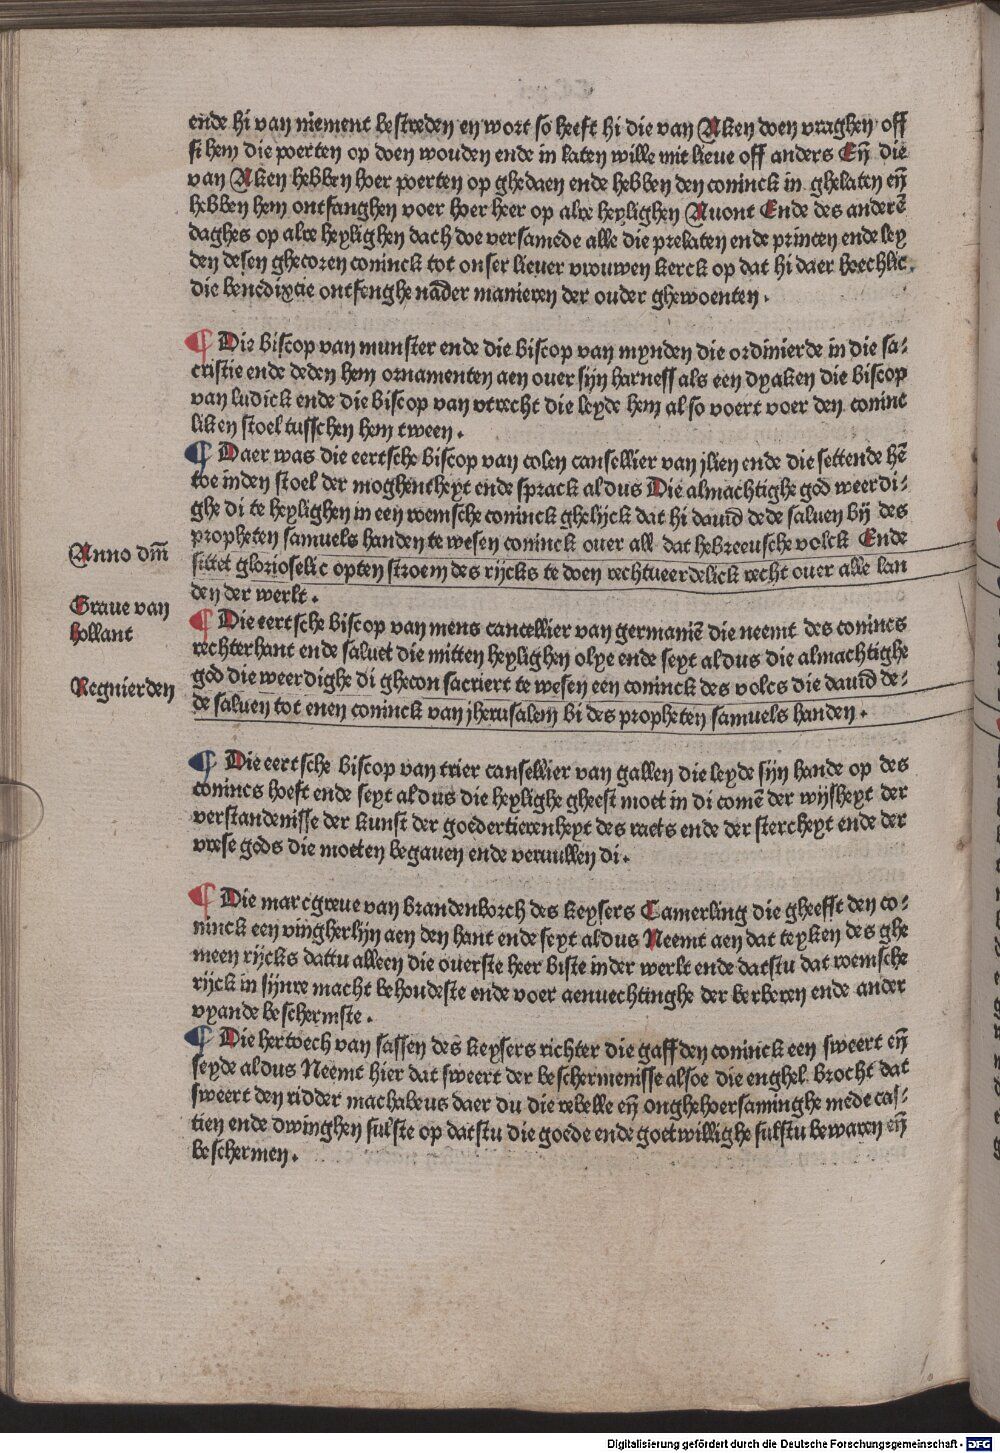 ende hi van niement bestreden en wort so heeft hi die van Aken doen vraghen off
si hem die poerten op doen wouden ende in laten wille mit lieue off anders Eñ die
van Aken hebben hoer poerten op ghedaen ende hebben den coninck in ghelaten eñ
hebben hem ontfanghen voer hoer heer op alre heylighen Auont Ende des anderē
daghes op alre heylighen dach doe versamede alle die prelaten ende princen ende ley
den desen ghecoren coninck tot onser lieuer vrouwen kerck op dat hi daer hoechlic
die benedixtie ontfenghe nāder manieren der ouder ghewoenten.
¶ Die biscop van munster ende die biscop van mynden die ordinierde in die sa⸗
cristie ende deden hem ornamenten aen ouer sijn harneff als een dyaken die biscop
van ludick ende die biscop van vtrecht die leyde hem also voert voer den coninc
liken stoel tusschen hem tween.
¶ Daer was die eertsche biscop van colen cansellier van jlien ende die settende hē
toe inden stoel der moghentheyt ende sprack aldus Die almachtighe god weerdi⸗
ghe di te heylighen in een roemsche coninck ghelijck dat hi dauid dede saluen bij des
propheten samuels handen te wesen coninck ouer all dat hebreeusche volck Ende
sittet glorioselic opten stroem des rijcks te doen rechtueerdelick recht ouer alle lan
den der werlt.
Anno dm̄
Graue van
hollant
Regnierden
¶ Die eertsche biscop van mens cancellier van germaniē die neemt des conincs
rechterhant ende saluet die mitten heylighen olye ende seyt aldus die almachtighe
god die weerdighe di ghecon sacriert te wesen een coninck des volcs die dauid de⸗
de saluen tot enen coninck van jherusalem bi des propheten samuels handen.
¶ Die eertsche biscop van trier cansellier van gallen die leyde sijn hande op des
conincs hoeft ende seyt aldus die heylighe gheest moet in di comē der wijsheyt der
verstandenisse der kunst der goedertierenheyt des raets ende der stercheyt ende der
vrese gods die moeten begauen ende veruullen di.
¶ Die marcgreue van brandenborch des keysers Camerling die gheefft den co⸗
ninck een vingherlijn aen den hant ende seyt aldus Neemt aen dat teyken des ghe
meen rijcks dattu alleen die ouerste heer biste inder werlt ende datstu dat roemsche
rijck in sijnre macht behoudeste ende voer aenuechtinghe der berberen ende ander
vyande beschermste.
¶ Die hertoech van sassen des keysers richter die gaff den coninck een sweert eñ
seyde aldus Neemt hier dat sweert der beschermenisse alsoe die enghel brocht dat
sweert den ridder machabeus daer du die rebelle eñ onghehoersaminghe mede cas⸗
tien ende dwinghen sulste op datstu die goede ende goetwillighe sulstu bewaren eñ
beschermen.
Digitalisierung gefördert durch die Deutsche Forschungsgemeinschaft - DFG